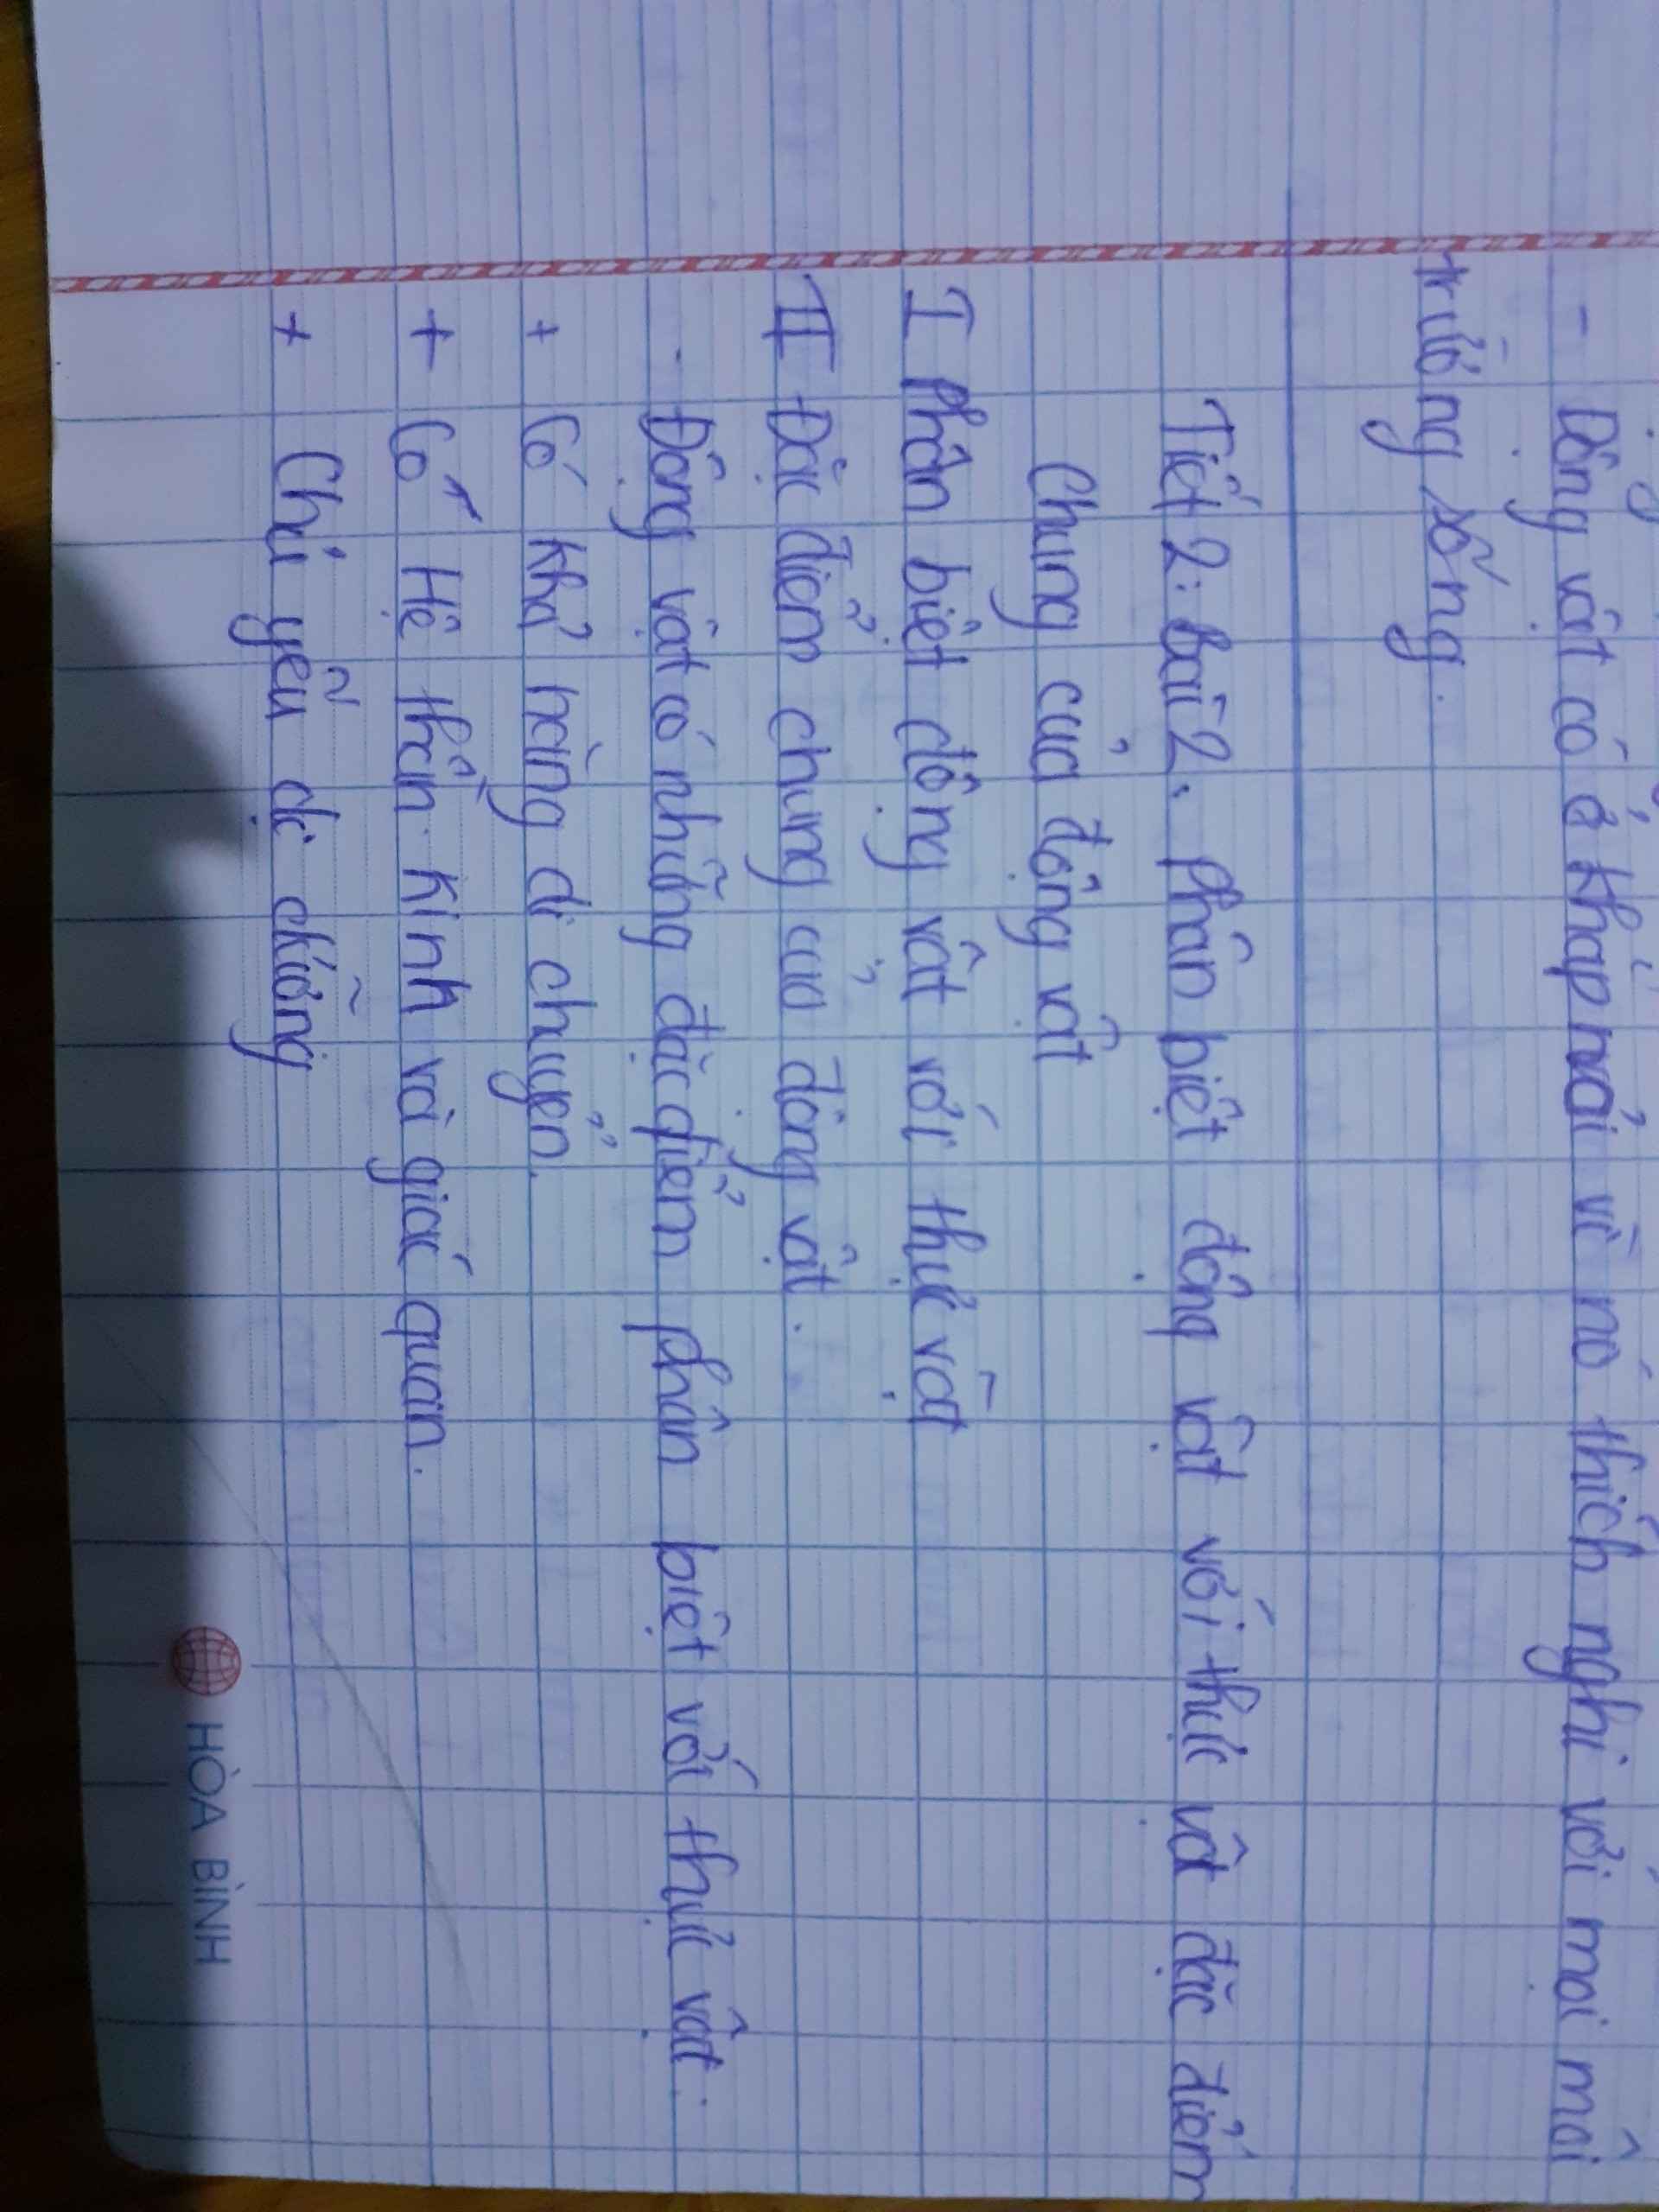 - Động vật có ở khắp nơi vì nó thích nghi với mọi môi
trường sống.
Tiết 2: Bài 2. Phân biệt động vật với thực vật đặc điểm
Chung của động vật
I Phân biệt động vật với thực vật
II Đặc điểm chung của động vật.
- Động vật có những đặc điểm phân biệt với thực vật.
+ Có khả năng di chuyển.
+ Có Hệ thần kinh và giác quan.
+ Chủ yếu dị dưỡng
HÒA BÌNH